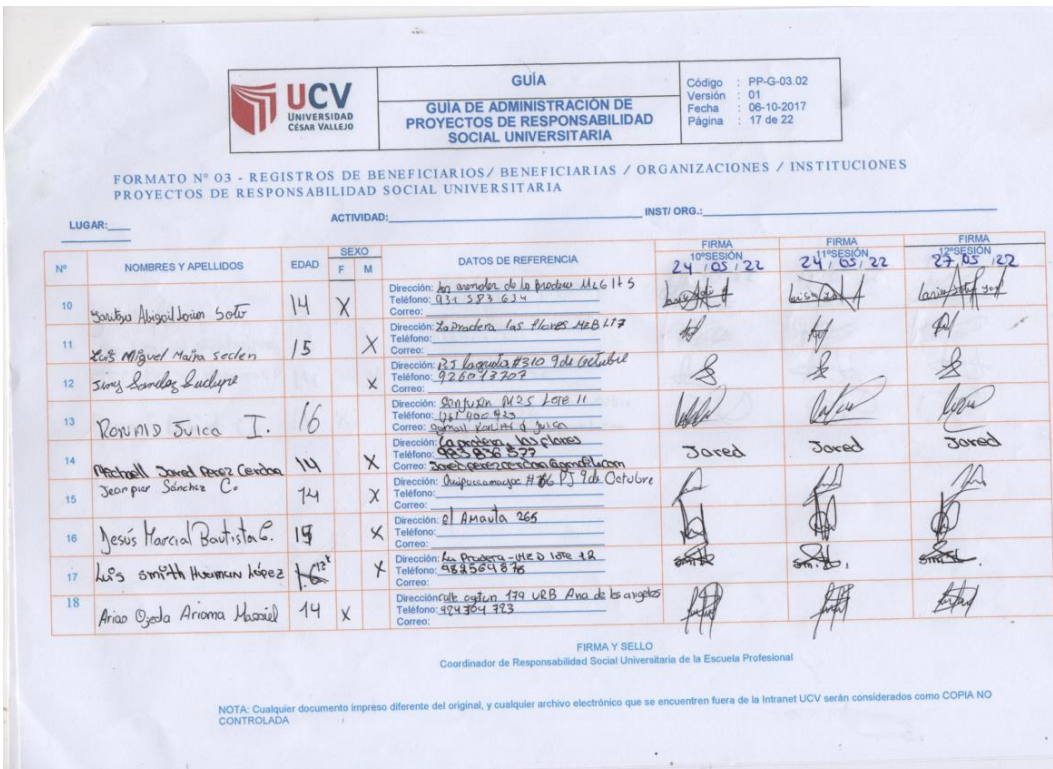 UCV
UNIVERSIDAD
CÉSAR VALLEJO
GUÍA
GUÍA DE ADMINISTRACIÓN DE
PROYECTOS DE RESPONSABILIDAD
SOCIAL UNIVERSITARIA
Código : PP-G-03.02
Versión : 01
Fecha : 06-10-2017
Página : 17 de 22
FORMATO Nº 03 - REGISTROS DE BENEFICIARIOS/ BENEFICIARIAS / ORGANIZACIONES / INSTITUCIONES
PROYECTOS DE RESPONSABILIDAD SOCIAL UNIVERSITARIA
LUGAR: ACTIVIDAD: INST/ ORG.:
Nº NOMBRES Y APELLIDOS EDAD SEXO F M DATOS DE REFERENCIA FIRMA 10ºSESIÓN FIRMA 11ºSESIÓN FIRMA 12ºSESIÓN
24/05/22 24/05/22 27/05/22
10 Abigail Soto 14 X
Dirección: de la
Teléfono: 931 583 634
Correo:
11 Luis Miguel Maira seclen 15 X
Dirección: La Pradera las flores Mz B L17
Teléfono:
Correo:
12 Sandoz X
Dirección: #310 9 de Octubre
Teléfono: 926013707
Correo:
13 RONALD I. 16
Dirección: Lote 11
Teléfono:
Correo:
14 Jared Perez Cerdan 14 X
Dirección: La pradera, las flores
Teléfono: 983 836 577
Correo: Jaredperezcerdan@gmail.com
Jared Jared Jared
15 Jeanpier Sánchez C. 14 X
Dirección: PJ 9 de Octubre
Teléfono:
Correo:
16 Jesús Marcial Bautista C. X
Dirección: el Amauta 265
Teléfono:
Correo:
17 Luis smith Huaman López X
Dirección: La Pradera - Mz D lote 12
Teléfono: 982569878
Correo:
18 Arias Ojeda 14 X
Dirección: calle 179 URB Ana de los angeles
Teléfono: 924304723
Correo:
FIRMA Y SELLO
Coordinador de Responsabilidad Social Universitaria de la Escuela Profesional
NOTA: Cualquier documento impreso diferente del original, y cualquier archivo electrónico que se encuentren fuera de la Intranet UCV serán considerados como COPIA NO
CONTROLADA